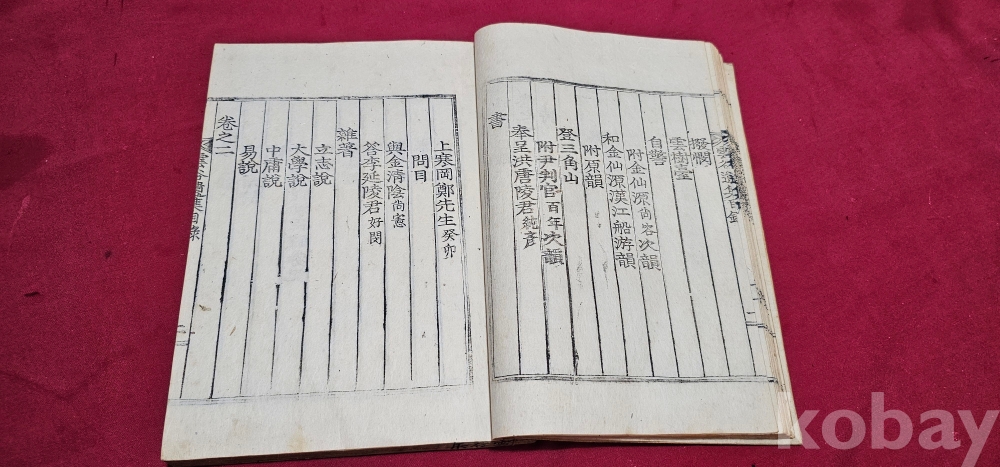 撥悶
雲樹堂
自警
附金仙源尙容次韻
和金仙源漢江船游韻
附原韻
登三角山
附尹判官百年次韻
奉呈洪唐陵君純彦
書
上寒岡鄭先生癸卯
問目
與金淸陰尙憲
答李延陵君好閔
雜著
立志說
大學說
中庸說
易說
卷之二
kobay